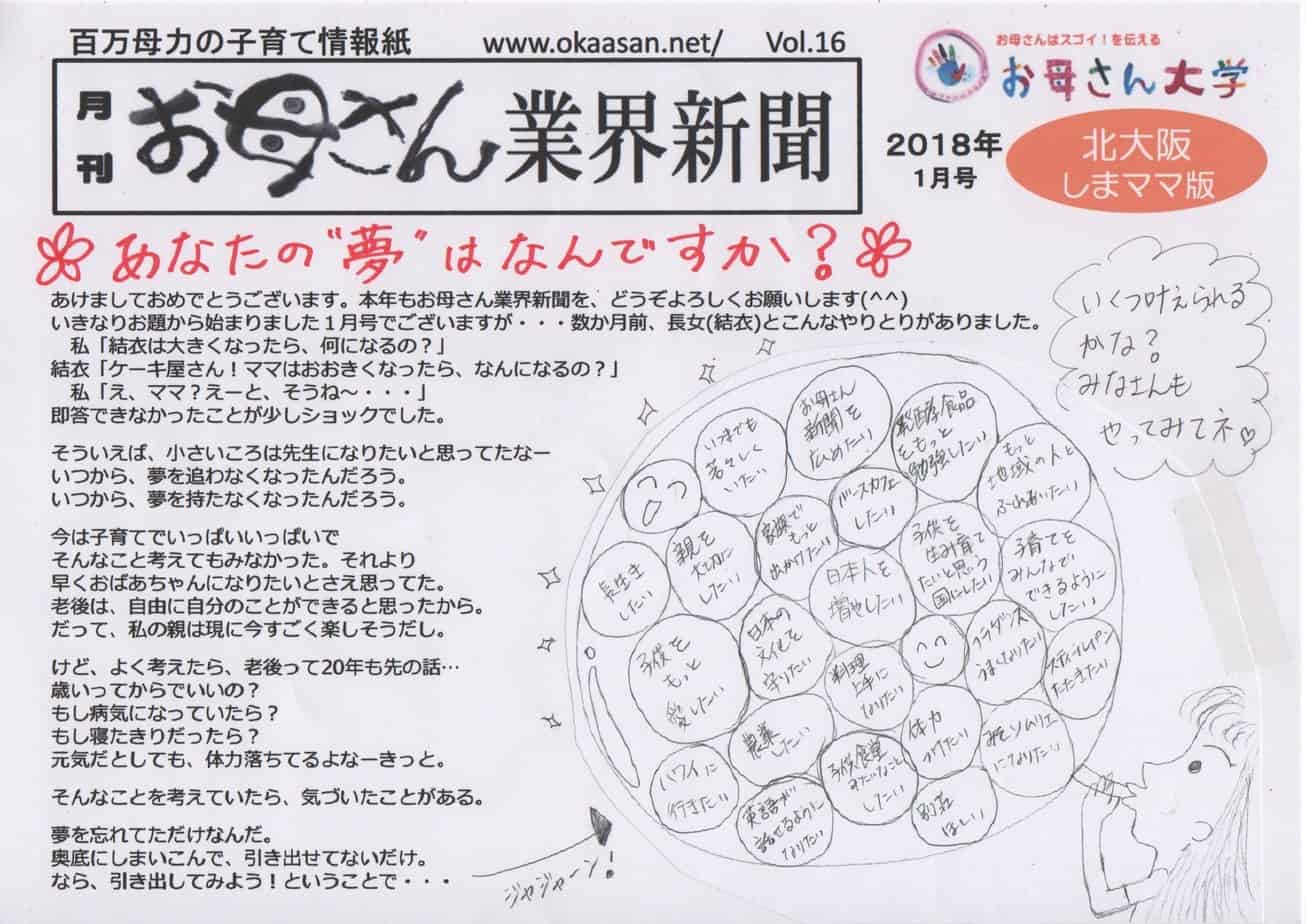 百万母力の子育て情報紙 www.okaasan.net/ Vol.16
月刊 お母さん業界新聞
お母さんはスゴイ！を伝える
お母さん大学
2018年
1月号
北大阪
しまママ版
あなたの"夢"はなんですか？
あけましておめでとうございます。本年もお母さん業界新聞を、どうぞよろしくお願いします(^^)
いきなりお題から始まりました１月号でございますが・・・数か月前、長女(結衣)とこんなやりとりがありました。
私「結衣は大きくなったら、何になるの？」
結衣「ケーキ屋さん！ママはおおきくなったら、なんになるの？」
私「え、ママ？えーと、そうね～・・・」
即答できなかったことが少しショックでした。
そういえば、小さいころは先生になりたいと思ってたなー
いつから、夢を追わなくなったんだろう。
いつから、夢を持たなくなったんだろう。
今は子育てでいっぱいいっぱいで
そんなこと考えてもみなかった。それより
早くおばあちゃんになりたいとさえ思ってた。
老後は、自由に自分のことができると思ったから。
だって、私の親は現に今すごく楽しそうだし。
けど、よく考えたら、老後って20年も先の話…
歳いってからでいいの？
もし病気になっていたら？
もし寝たきりだったら？
元気だとしても、体力落ちてるよなーきっと。
そんなことを考えていたら、気づいたことがある。
夢を忘れてただけなんだ。
奥底にしまいこんで、引き出せてないだけ。
なら、引き出してみよう！ということで・・・
ジャジャーン！
いくつ叶えられる
かな？
みなさんも
やってみてネ♡
お母さん
新聞を
広めたい
発酵食品
をもっと
勉強したい
いつまでも
若々しく
いたい
もっと
地域の人と
ふれあいたい
バースカフェ
したい
家族で
もっと
出かけたい
親を
大切に
したい
長生き
したい
日本人を
増やしたい
子供を
生み育て
たいと思う
国にしたい
子育てを
みんなで
できるように
したい
子供を
もっと
愛したい
日本の
文化を
守りたい
料理
上手に
なりたい
フラダンス
うまくなりたい
スティールパン
たたきたい
農業
したい
体力
つけたい
みそソムリエ
になりたい
ハワイに
行きたい
英語が
話せるように
なりたい
子供食堂
みたいなこと
したい
別荘
ほしい